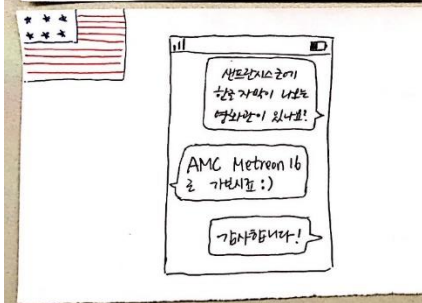 샌프란시스코에
한글 자막이 나오는
영화관이 있나요?
AMC Metreon 16
로 가보시죠 :)
감사합니다!